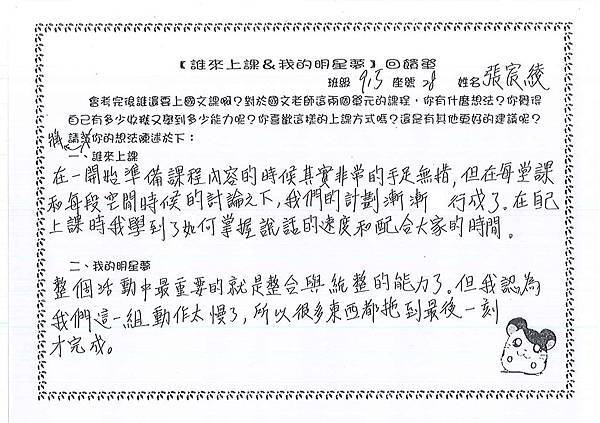 【誰來上課&我的明星夢】回饋單
班級 913 座號 28 姓名 張宸綾
會考完很誰還要上國文課啊?對於國文老師這兩個單元的課程,你有什麼想法?你覺得
自己有多少收穫又學到多少能力呢?你喜歡這樣的上課方式嗎?還是有其他更好的建議呢?
請將你的想法陳述於下:
一、誰來上課
在一開始準備課程內容的時候其實非常的手足無措,但在每堂課
和每段空閒時候的討論之下,我們的計劃漸漸 行成了。在自己
上課時我學到了如何掌握說話的速度和配合大家的時間。
二、我的明星夢
整個活動中最重要的就是整合與統整的能力了。但我認為
我們這一組動作太慢了,所以很多東西都拖到最後一刻
才完成。